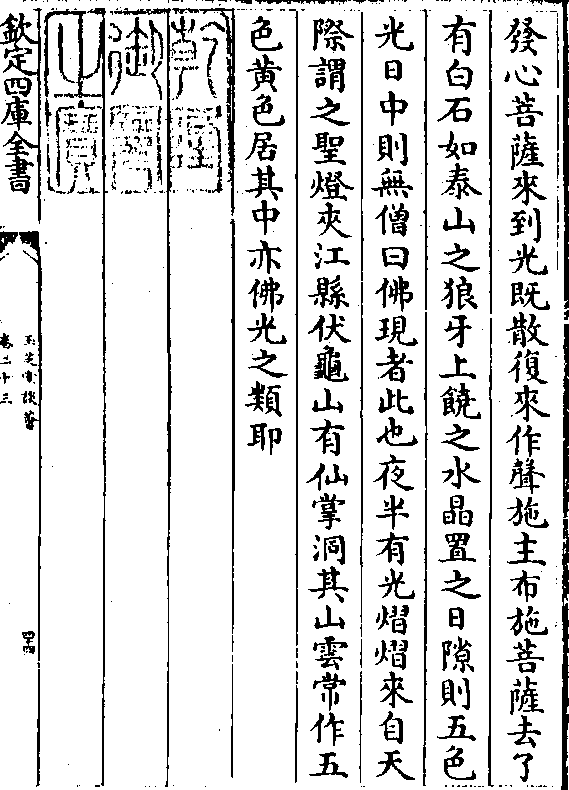 發心菩薩來到光既散復來作聲施主布施菩薩去了
有白石如泰山之狼牙上饒之水晶置之日隙則五色
光日中則無僧曰佛現者此也夜半有光熠熠來自天
際謂之聖燈夾江縣伏龜山有仙掌洞其山雲常作五
色黄色居其中亦佛光之類耶
乾隆
御覽
之寳
欽定四庫全書
玉芝堂談薈
卷二十三
四十四